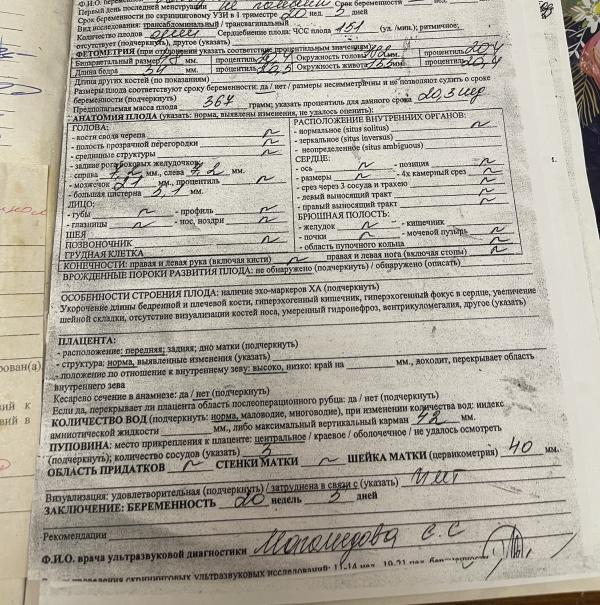 Первый день последней менструации не помнит Срок беременности
Срок беременности по скрининговому УЗИ в 1 триместре 20 нед. 5 дней
Вид исследования: трансабдоминальный / трансвагинальный
Количество плодов один Сердцебиение плода: ЧСС плода 151 (уд. /мин.); ритмичное;
отсутствует (подчеркнуть), другое (указать)
ФЕТОМЕТРИЯ (при отклонении указать соответствие процентильным значениям)
Бипариетальный размер мм. процентиль 20,4 Окружность головы процентиль 20,4
Длина бедра 34 мм. процентиль 20,5 Окружность живота процентиль 20,4
Длина других костей (по показаниям)
Размеры плода соответствуют сроку беременности: да / нет / размеры несимметричны и не позволяют судить о сроке
беременности (подчеркнуть)
Предполагаемая масса плода 367 грамм; указать процентиль для данного срока 20,3 нед
АНАТОМИЯ ПЛОДА (указать: норма, выявлены изменения, не удалось оценить):
ГОЛОВА:
- кости свода черепа N
- полость прозрачной перегородки N
- срединные структуры N
- задние рога боковых желудочков
справа 7,2 мм., слева 7,2 мм.
- мозжечок 21 мм., процентиль N
- большая цистерна 5,1 мм.
ЛИЦО:
- губы N - профиль N
- глазницы N - нос, ноздри N
ШЕЯ
ПОЗВОНОЧНИК N
ГРУДНАЯ КЛЕТКА
РАСПОЛОЖЕНИЕ ВНУТРЕННИХ ОРГАНОВ:
- нормальное (situs solitus) N
- зеркальное (situs inversus)
- неопределенное (situs ambiguous)
СЕРДЦЕ:
- ось N - позиция N
- размеры N - 4х камерный срез N
- срез через 3 сосуда и трахею N
- левый выносящий тракт N
- правый выносящий тракт N
БРЮШНАЯ ПОЛОСТЬ:
- желудок N - кишечник N
- почки N - мочевой пузырь N
- область пупочного кольца N
КОНЕЧНОСТИ: правая и левая рука (включая кисти) N правая и левая нога (включая стопы) N
ВРОЖДЕННЫЕ ПОРОКИ РАЗВИТИЯ ПЛОДА: не обнаружено (подчеркнуть) / обнаружено (описать)
ОСОБЕННОСТИ СТРОЕНИЯ ПЛОДА: наличие эхо-маркеров ХА (подчеркнуть)
Укорочение длины бедренной и плечевой кости, гиперэхогенный кишечник, гиперэхогенный фокус в сердце, увеличение
шейной складки, отсутствие визуализации костей носа, умеренный гидронефроз, вентрикуломегалия, другое (указать)
ПЛАЦЕНТА:
- расположение: передняя; задняя; дно матки (подчеркнуть)
- структура: норма, выявленные изменения (указать)
- положение по отношение к внутреннему зеву: высоко, низко: край на мм., доходит, перекрывает область
внутреннего зева
Кесарево сечение в анамнезе: да / нет (подчеркнуть)
Если да, перекрывает ли плацента область послеоперационного рубца: да / нет (подчеркнуть)
КОЛИЧЕСТВО ВОД (подчеркнуть: норма, маловодие, многоводие), при изменении количества вод: индекс
амниотической жидкости мм., либо максимальный вертикальный карман 42 мм.
ПУПОВИНА: место прикрепления к плаценте: центральное / краевое / оболочечное / не удалось осмотреть
(подчеркнуть); количество сосудов (указать) 3
ОБЛАСТЬ ПРИДАТКОВ N СТЕНКИ МАТКИ N ШЕЙКА МАТКИ (цервикометрия) 40 мм.
Визуализация: удовлетворительная (подчеркнуть) / затруднена в связи с (указать)
ЗАКЛЮЧЕНИЕ: БЕРЕМЕННОСТЬ 20 недель 5 дней
Рекомендации
Ф.И.О. врача ультразвуковой диагностики Магомедова С.С
скрининговых ультразвуковых исследований: 11-14 нед., 19-21 нед. беременности